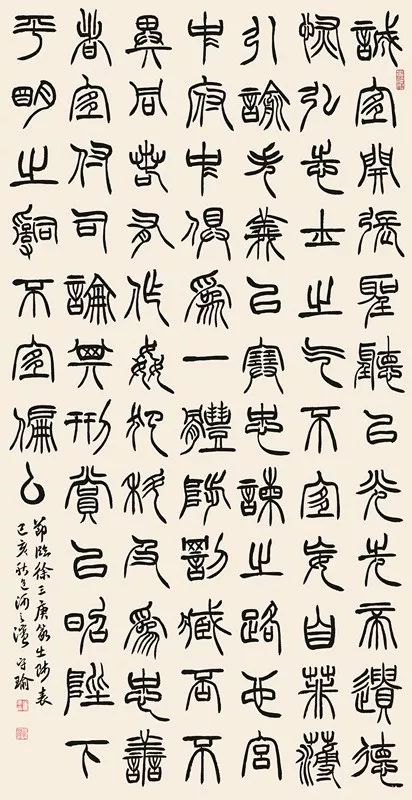 誠宜開張聖聽以光先帝遺德
恢弘志士之气不宜妄自菲薄
引諭失義以塞忠諫之路也宮
中府中俱為一體陟罰臧否不
異同若有作姦犯科及為忠善
者宜付司論其刑賞以昭陛下
平明之治不宜偏厶
節臨徐三庚篆出師表
己亥秋河之濱